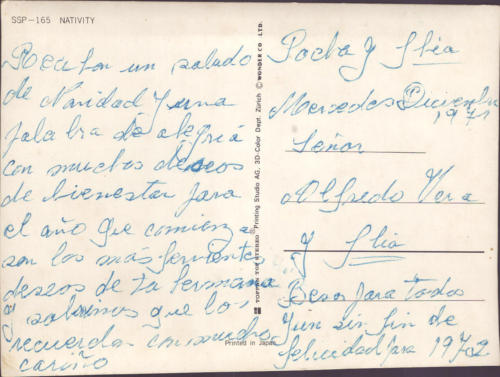 SSP-165 NATIVITY
Reciban un saludo
de Navidad y una
palabra de alegria
con muchos deseos
de bienestar para
el año que comienza
son los más fervientes
deseos de tu hermana
y sobrinos que los
recuerdan con mucho
cariño
TOPPAN TOP STEREO Printing Studio AG, 3D-Color Dept. Zürich © WONDER CO. LTD.
Printed in Japan
Pocha y flia
Mercedes Diciembre
1971
Señor
Alfredo Vera
y flia
Besos para todos
y un sin fin de
felicidad para 1972